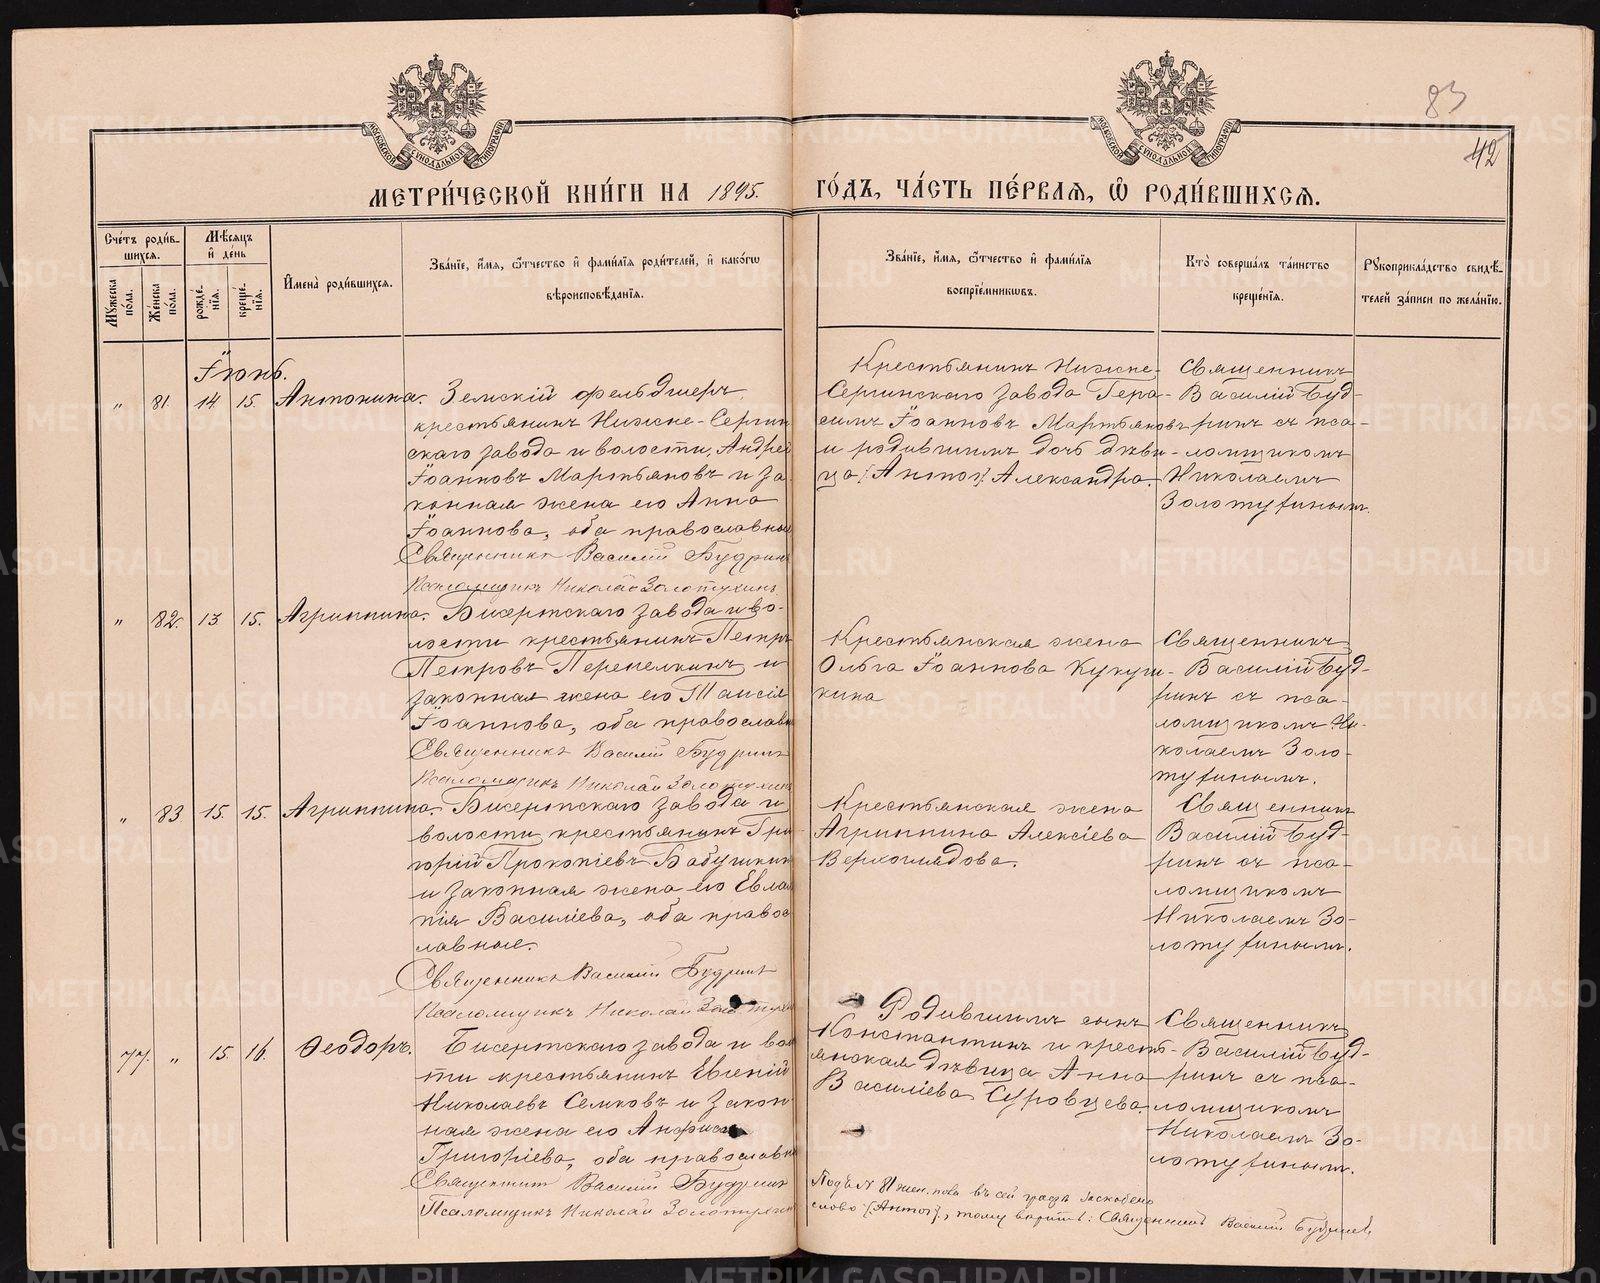 83
42
МЕТРИ́ЧЕСКОЙ КНИ́ГИ НА 1895. ГО́ДЪ, ЧА́СТЬ ПЕ́РВАЯ, Ѡ РОДИ́ВШИХСЯ.
Сче́тъ роди́в-
шихся.
Му́жеска по́ла.
Же́нска по́ла.
Мѣ́сяцъ
и де́нь
рожде́-
нїя.
креще́-
нїя.
Имена̀ роди́вшихся.
Зва́нїе, и́мя, ѻ́тчество и фами́лїя роди́телей, и како́гѡ
вѣроисповѣ́данїя.
Зва́нїе, и́мя, ѻ́тчество и фами́лїя
воспрїе́мникѡвъ.
Кто̀ соверша́лъ та́инство
креще́нїя.
Рꙋкоприкла́дство свидѣ́-
телей за́писи по жела́нїю.
Іюнь.
" 81. 14 15. Антонина.
Земскій фельдшеръ,
крестьянинъ Нижне-Сергин
скаго завода и волости, Андрей
Іоанновъ Мартьяновъ и за
конная жена его Анна
Іоаннова, оба православные
Священникъ Василій Будринъ
Псаломщикъ Николай Золотухинъ
Крестьянинъ Нижне-
Сергинскаго завода Гера-
симъ Іоанновъ Мартьяновъ
и родившимъ дочь дѣви-
ца [Антон] Александра.
Священникъ
Василій Буд-
ринъ съ пса-
ломщикомъ
Николаемъ
Золотухинымъ.
" 82. 13 15. Агриппина.
Бисертскаго завода и во-
лости крестьянинъ Петръ
Петровъ Перепелкинъ и
законная жена его Таисія
Іоаннова, оба православн
Священникъ Василій Будринъ
Псаломщикъ Николай Золотухинъ
Крестьянская жена
Ольга Іоаннова Кукуш-
кина
Священникъ
Василій Буд-
ринъ съ пса-
ломщикомъ Ни-
колаемъ Золо-
тухинымъ.
" 83 15. 15. Агриппина.
Бисертскаго завода и
волости крестьянинъ Гри
горій Прокопіевъ Бабушкин
и законная жена его Евла
пія Василіева, оба правос
лавные.
Священникъ Василій Будринъ
Псаломщикъ Николай Золотухин
Крестьянская жена
Агриппина Алексіева
Верхоглядова.
Священникъ
Василій Буд-
ринъ съ пса-
ломщикомъ
Николаемъ Зо-
лотухинымъ.
77. " 15. 16. Ѳеодоръ.
Бисертскаго завода и вол
ти крестьянинъ Евгеній
Николаевъ Семковъ и закон
ная жена его Анфиса
Григоріева, оба православн
Священникъ Василій Будринъ
Псаломщикъ Николай Золотухин
Родившимъ сынъ
Константинъ и кресть-
янская дѣвица Анна
Василіева Суровцева.
Священникъ
Василій Буд-
ринъ съ пса-
ломщикомъ
Николаемъ Зо-
лотухинымъ.
Подъ № 81 жен. пола въ сей графѣ заскоблено
слово: [Антон], тому вѣрить: Священникъ Василій Будринъ